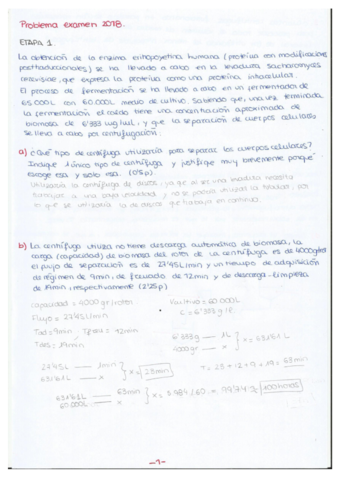 Problema examen 2018.
ETAPA 1
La obtención de la enzima eritopoyetina humana (proteína con modificaciones
postraduccionales) se ha llevado a cabo en la levadura Sacharomyces
cerevisiae, que expresa la proteína como una proteína intracelular.
El proceso de fermentación se ha llevado a cabo en un fermentador de
65.000L con 60.000L medio de cultivo. Sabiendo que, una vez terminada
la fermentación el caldo tiene una concentración aproximada de
biomasa de 6'333 ug/uL, y que la separación de cuerpos celulares
se lleva a cabo por centrifugación.
a) ¿Qué tipo de centrífuga utilizaría para separar los cuerpos celulares?
Indique 1 único tipo de centrífuga y justifique muy brevemente porqué
escoge esa y solo esa. (0'5p).
Utilizaría la centrífuga de discos, ya que al ser una levadura
a una velocidad y no se podría utilizar la tubular, por
lo que se utilizaría la de discos que trabaja en continuo.
b) La centrífuga utiliza no tiene descarga automática de biomasa, la
carga (capacidad) de biomasa del rotor de la centrífuga es de 4000g/rotor
el flujo de separación es de 27'45L/min y un tiempo de adquisición
de régimen de 9min, de frenado de 12min y de descarga-limpieza
de 19min, respectivamente (2'25p)
capacidad = 4000 gr/rotor Vcultivo = 60.000L
Flujo = 27'45L/min C = 6'333 g/L
Tad = 9min Tfren = 12min
Tdes = 19min
6'333g — 1L
4000gr — x } x = 631'61L
27'45L — 1min
631'61L — x } x = 23min T = 23 + 12 + 9 + 19 = 63min
631'61L — 63min
60.000L — x } x =
-1-